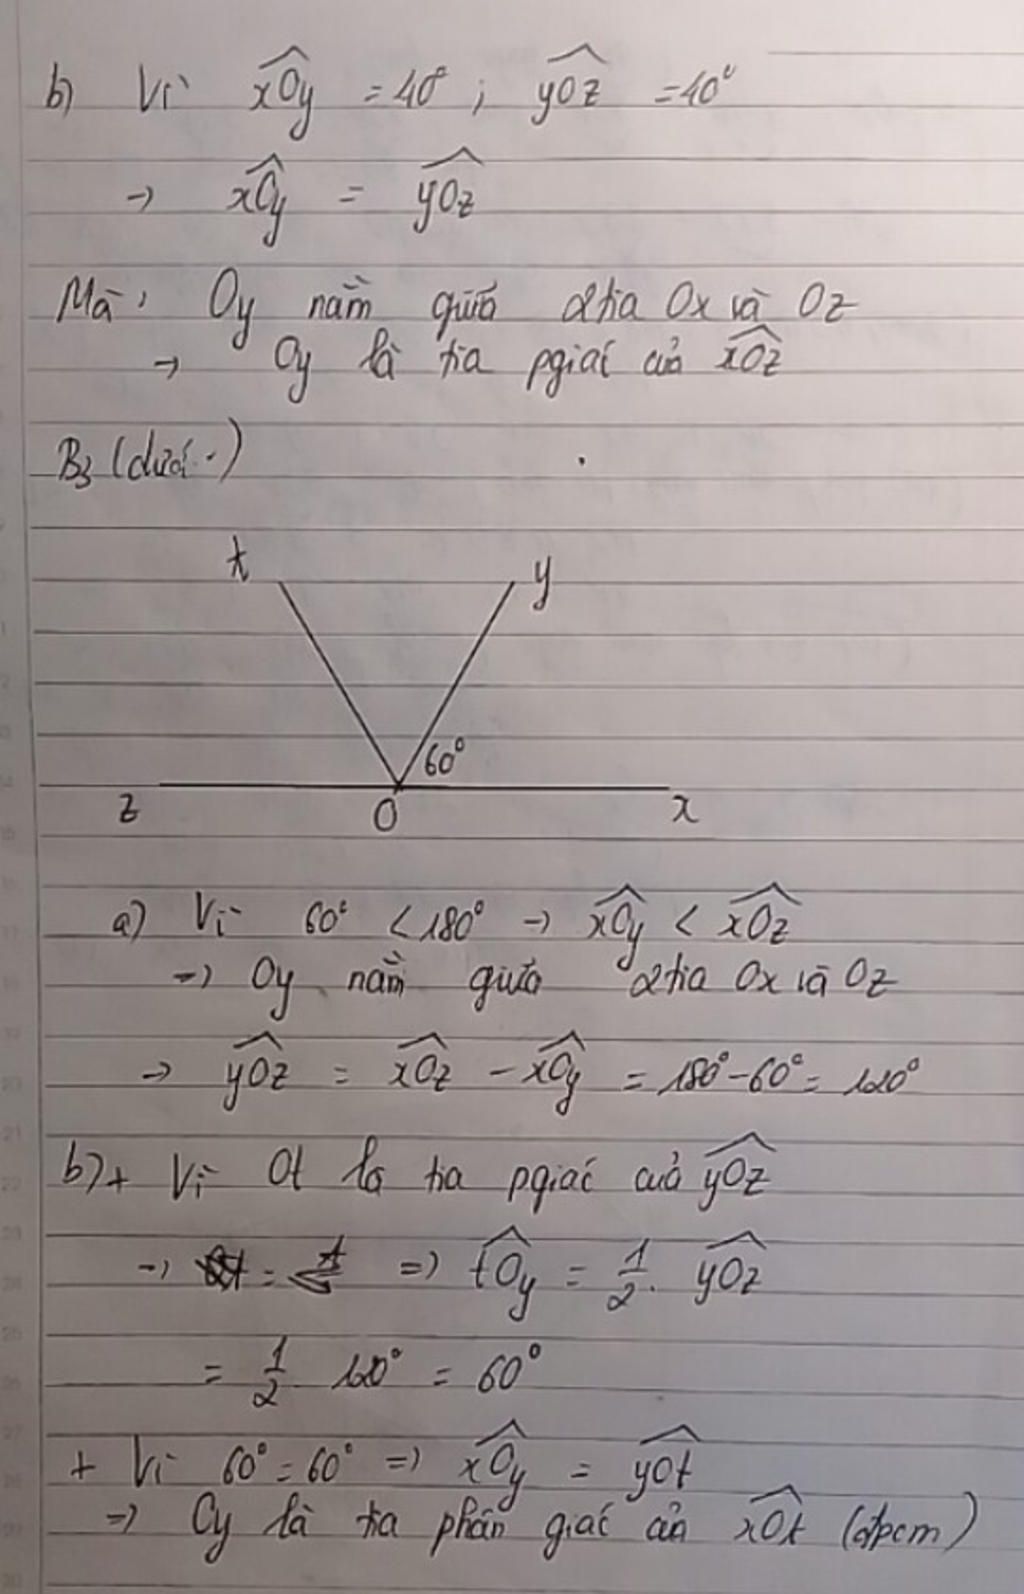 b) Vì xOy = 40° ; yOz = 40°
→ xOy = yOz
Mà, Oy nằm giữa 2 tia Ox và Oz
→ Oy là tia pgiác của xOz
B3 (dưới..)
t
y
60°
z
O
x
a) Vì 60° < 180° → xOy < xOz
=> Oy nằm giữa 2 tia Ox và Oz
→ yOz = xOz - xOy = 180° - 60° = 120°
b) + Vì Ot là tia pgiác của yOz
→ = => tOy = 1/2 . yOz
= 1/2 120° = 60°
+ Vì 60° = 60° => xOy = yOt
=> Oy là tia phân giác của xOt (đpcm)